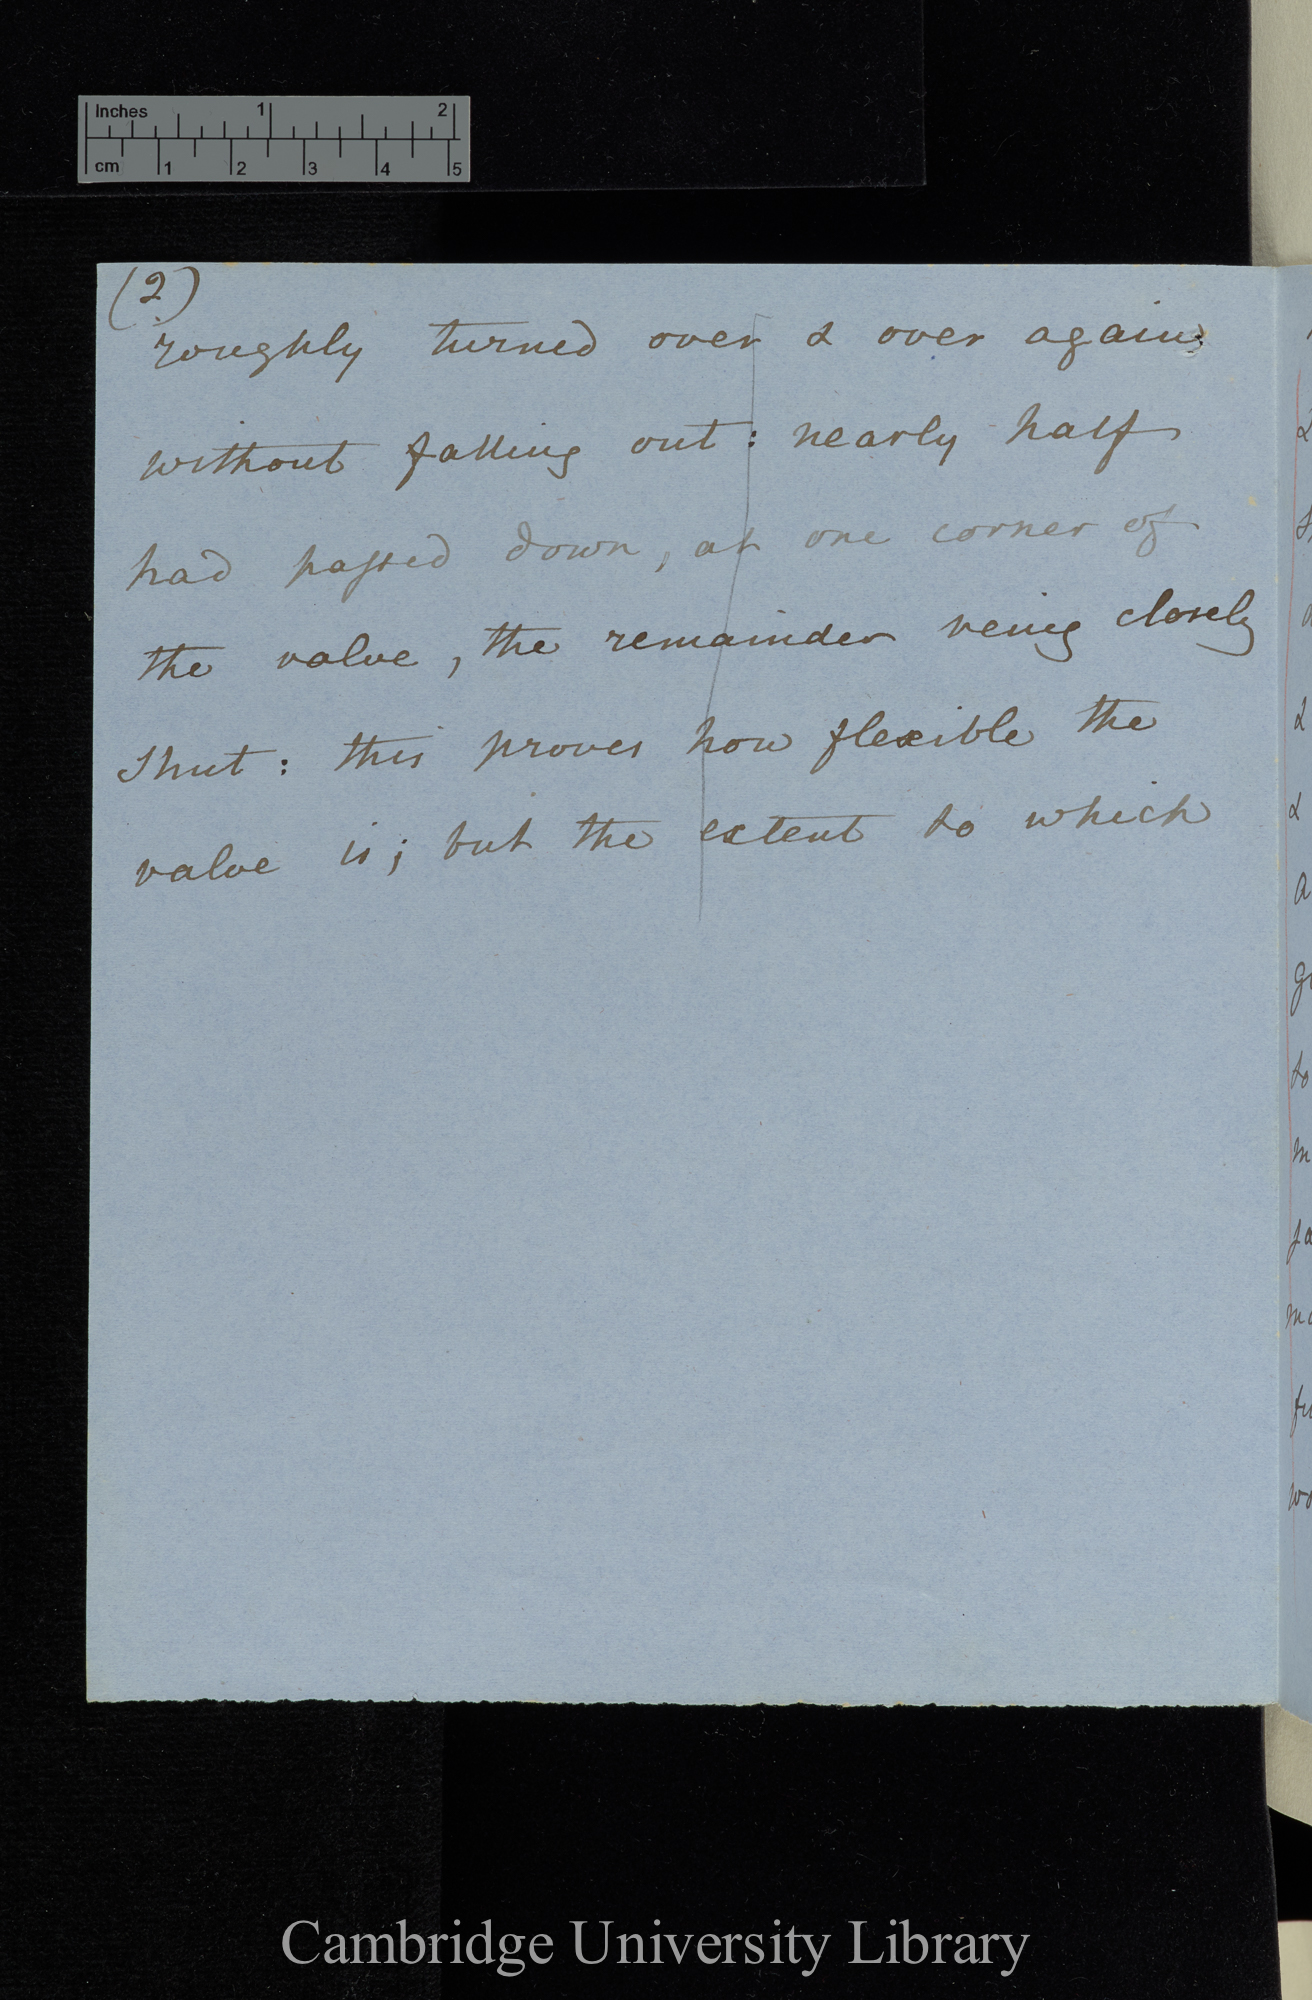 Inches 1 2
cm 1 2 3 4 5
(2)
roughly turned over & over again;
without falling out: nearly half
had passed down, at one corner of
the valve, the remainder being closely
shut: this proves how flexible the
valve is; but the extent to which
Cambridge University Library